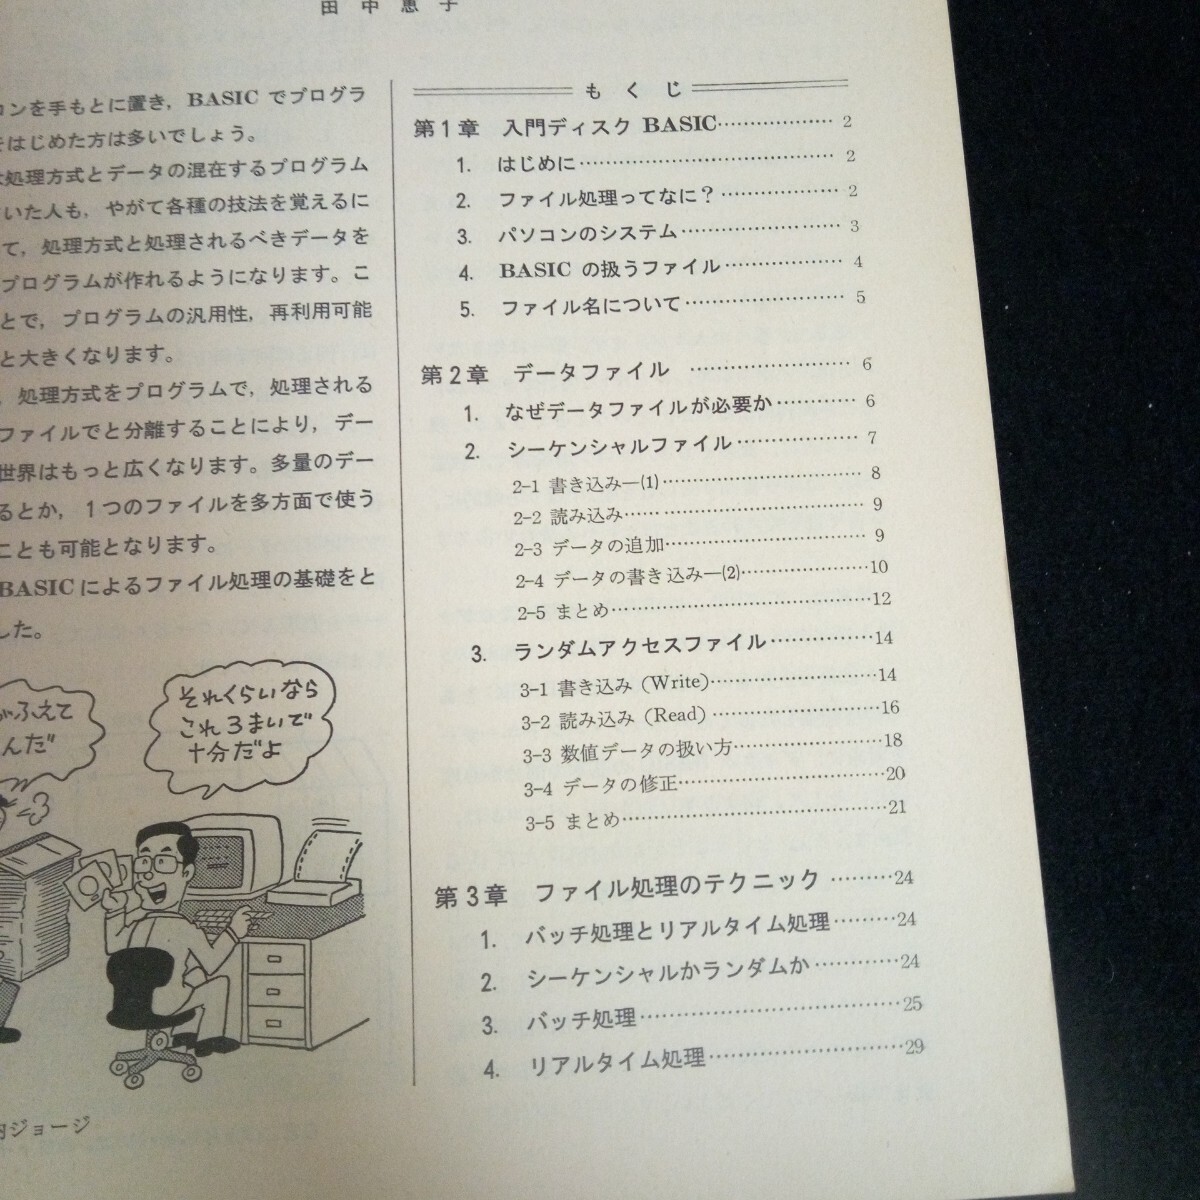 田中恵子
コンを手もとに置き，BASICでプログラ
をはじめた方は多いでしょう。
処理方式とデータの混在するプログラム
いた人も，やがて各種の技法を覚えるに
て，処理方式と処理されるべきデータを
プログラムが作れるようになります。こ
とで，プログラムの汎用性，再利用可能
と大きくなります。
，処理方式をプログラムで，処理される
ファイルでと分離することにより，デー
世界はもっと広くなります。多量のデー
るとか，1つのファイルを多方面で使う
ことも可能となります。
BASICによるファイル処理の基礎をと
した。
ふえて
んだ
それくらいなら
これ3まいで
十分だよ
ジョージ
もくじ
第1章 入門ディスク BASIC……………… 2
1. はじめに……………………………… 2
2. ファイル処理ってなに？……………… 2
3. パソコンのシステム………………… 3
4. BASIC の扱うファイル……………… 4
5. ファイル名について………………… 5
第2章 データファイル ………………… 6
1. なぜデータファイルが必要か………… 6
2. シーケンシャルファイル……………… 7
2-1 書き込み—(1)……………………… 8
2-2 読み込み…………………………… 9
2-3 データの追加……………………… 9
2-4 データの書き込み—(2)………………10
2-5 まとめ………………………………12
3. ランダムアクセスファイル……………14
3-1 書き込み (Write)……………………14
3-2 読み込み (Read) ……………………16
3-3 数値データの扱い方…………………18
3-4 データの修正…………………………20
3-5 まとめ………………………………21
第3章 ファイル処理のテクニック ………24
1. バッチ処理とリアルタイム処理………24
2. シーケンシャルかランダムか…………24
3. バッチ処理………………………………25
4. リアルタイム処理………………………29